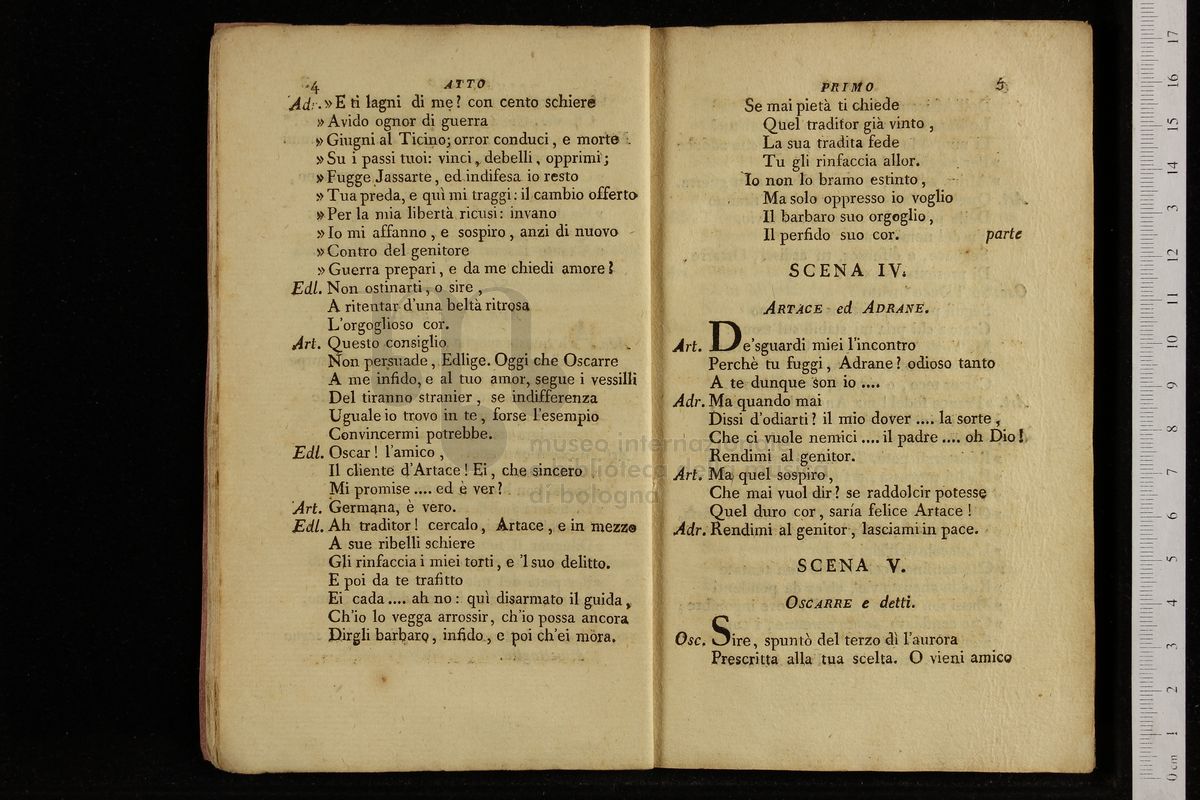 4 ATTO
Adr. » E ti lagni di me? con cento schiere
» Avido ognor di guerra
» Giugni al Ticino; orror conduci, e morte
» Su i passi tuoi: vinci, debelli, opprimi;
» Fugge Jassarte, ed indifesa io resto
» Tua preda, e quì mi traggi: il cambio offerto
» Per la mia libertà ricusi: invano
» Io mi affanno, e sospiro, anzi di nuovo
» Contro del genitore
» Guerra prepari, e da me chiedi amore?
Edl. Non ostinarti, o sire,
A ritentar d'una beltà ritrosa
L'orgoglioso cor.
Art. Questo consiglio
Non persuade, Edlige. Oggi che Oscarre
A me infido, e al tuo amor, segue i vessilli
Del tiranno stranier, se indifferenza
Uguale io trovo in te, forse l'esempio
Convincermi potrebbe.
Edl. Oscar! l'amico,
Il cliente d'Artace! Ei, che sincero
Mi promise .... ed è ver?
Art. Germana, è vero.
Edl. Ah traditor! cercalo, Artace, e in mezzo
A sue ribelli schiere
Gli rinfaccia i miei torti, e 'l suo delitto.
E poi da te trafitto
Ei cada .... ah no: quì disarmato il guida,
Ch'io lo vegga arrossir, ch'io possa ancora
Dirgli barbaro, infido, e poi ch'ei mora.
PRIMO 5
Se mai pietà ti chiede
Quel traditor già vinto,
La sua tradita fede
Tu gli rinfaccia allor.
Io non lo bramo estinto,
Ma solo oppresso io voglio
Il barbaro suo orgoglio,
Il perfido suo cor. parte
SCENA IV.
ARTACE ed ADRANE.
Art. De'sguardi miei l'incontro
Perchè tu fuggi, Adrane? odioso tanto
A te dunque son io ....
Adr. Ma quando mai
Dissi d'odiarti? il mio dover .... la sorte,
Che ci vuole nemici .... il padre .... oh Dio!
Rendimi al genitor.
Art. Ma quel sospiro,
Che mai vuol dir? se raddolcir potesse
Quel duro cor, saría felice Artace!
Adr. Rendimi al genitor, lasciami in pace.
SCENA V.
OSCARRE e detti.
Osc. Sire, spuntò del terzo dì l'aurora
Prescritta alla tua scelta. O vieni amico
museo internazionale
biblioteca della musica
di bologna
0 cm 1 2 3 4 5 6 7 8 9 10 11 12 13 14 15 16 17